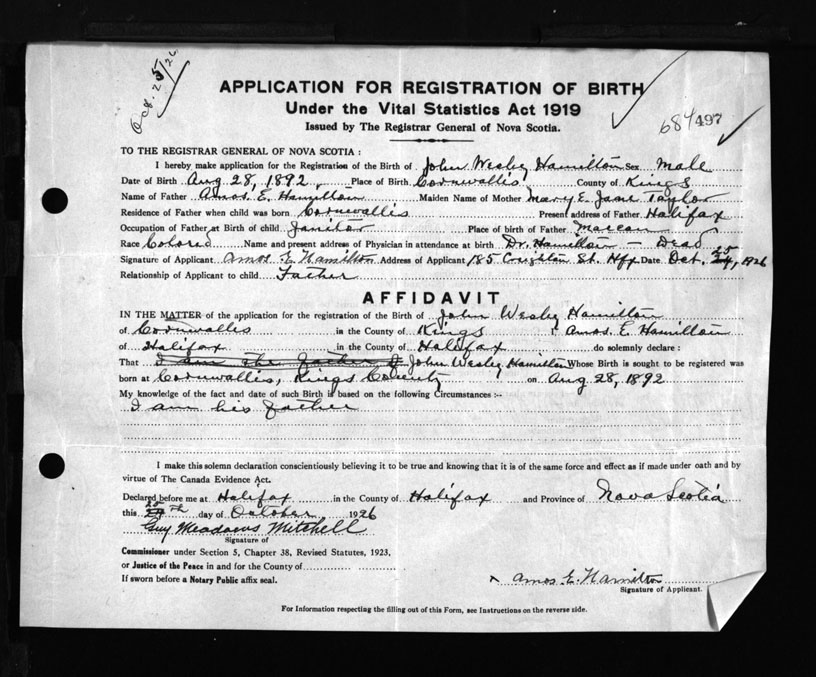 Oct. 25/26
APPLICATION FOR REGISTRATION OF BIRTH
Under the Vital Statistics Act 1919
Issued by The Registrar General of Nova Scotia.
684497
TO THE REGISTRAR GENERAL OF NOVA SCOTIA :
I hereby make application for the Registration of the Birth of John Wesley Hamilton Sex Male
Date of Birth Aug 28, 1892, Place of Birth Cornwallis County of Kings
Name of Father Amos. E. Hamilton Maiden Name of Mother Mary E. Jane Taylor
Residence of Father when child was born Cornwallis Present address of Father Halifax
Occupation of Father at Birth of child Janitor Place of birth of Father
Race Colored Name and present address of Physician in attendance at birth Dr. Hamilton - Dead
Signature of Applicant Amos E Hamilton Address of Applicant 185 Creighton St. Hfx Date Oct. 25, 1926
Relationship of Applicant to child Father
AFFIDAVIT
IN THE MATTER of the application for the registration of the Birth of John Wesley Hamilton
of Cornwallis in the County of Kings I, Amos. E. Hamilton
of Halifax in the County of Halifax do solemnly declare :
That I am the father of John Wesley Hamilton Whose Birth is sought to be registered was
born at Cornwallis, Kings County on Aug 28, 1892
My knowledge of the fact and date of such Birth is based on the following Circumstances :-
I am his father
I make this solemn declaration conscientiously believing it to be true and knowing that it is of the same force and effect as if made under oath and by
virtue of The Canada Evidence Act.
Declared before me at Halifax in the County of Halifax and Province of Nova Scotia
this 25th day of October 1926
Guy Meadows Mitchell
Signature of
Commissioner under Section 5, Chapter 38, Revised Statutes, 1923,
or Justice of the Peace in and for the County of
If sworn before a Notary Public affix seal.
x Amos E. Hamilton
Signature of Applicant.
For Information respecting the filling out of this Form, see Instructions on the reverse side.